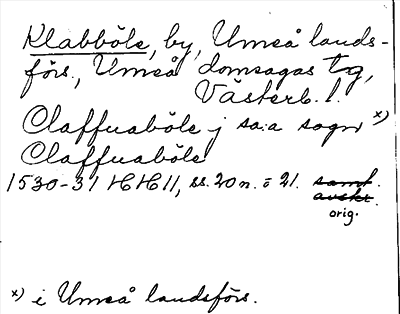 Klabböle, by, Umeå lands-
förs., Umeå domsagas tg,
Västerb. l.
Claffuaböle j sa:a sogn x)
Claffuaböle
1530-31 HH 11, ss. 20 n. o 21. samt.
avskr.
orig.
x) i Umeå landsförs.